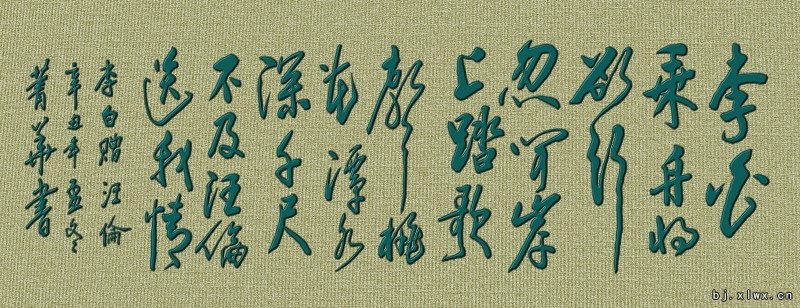 李白
乘舟将
欲行
忽闻岸
上踏歌
声桃
花潭水
深千尺
不及汪倫
送我情
李白赠汪倫
辛丑年孟冬
菁華書
bj.xlwx.cn